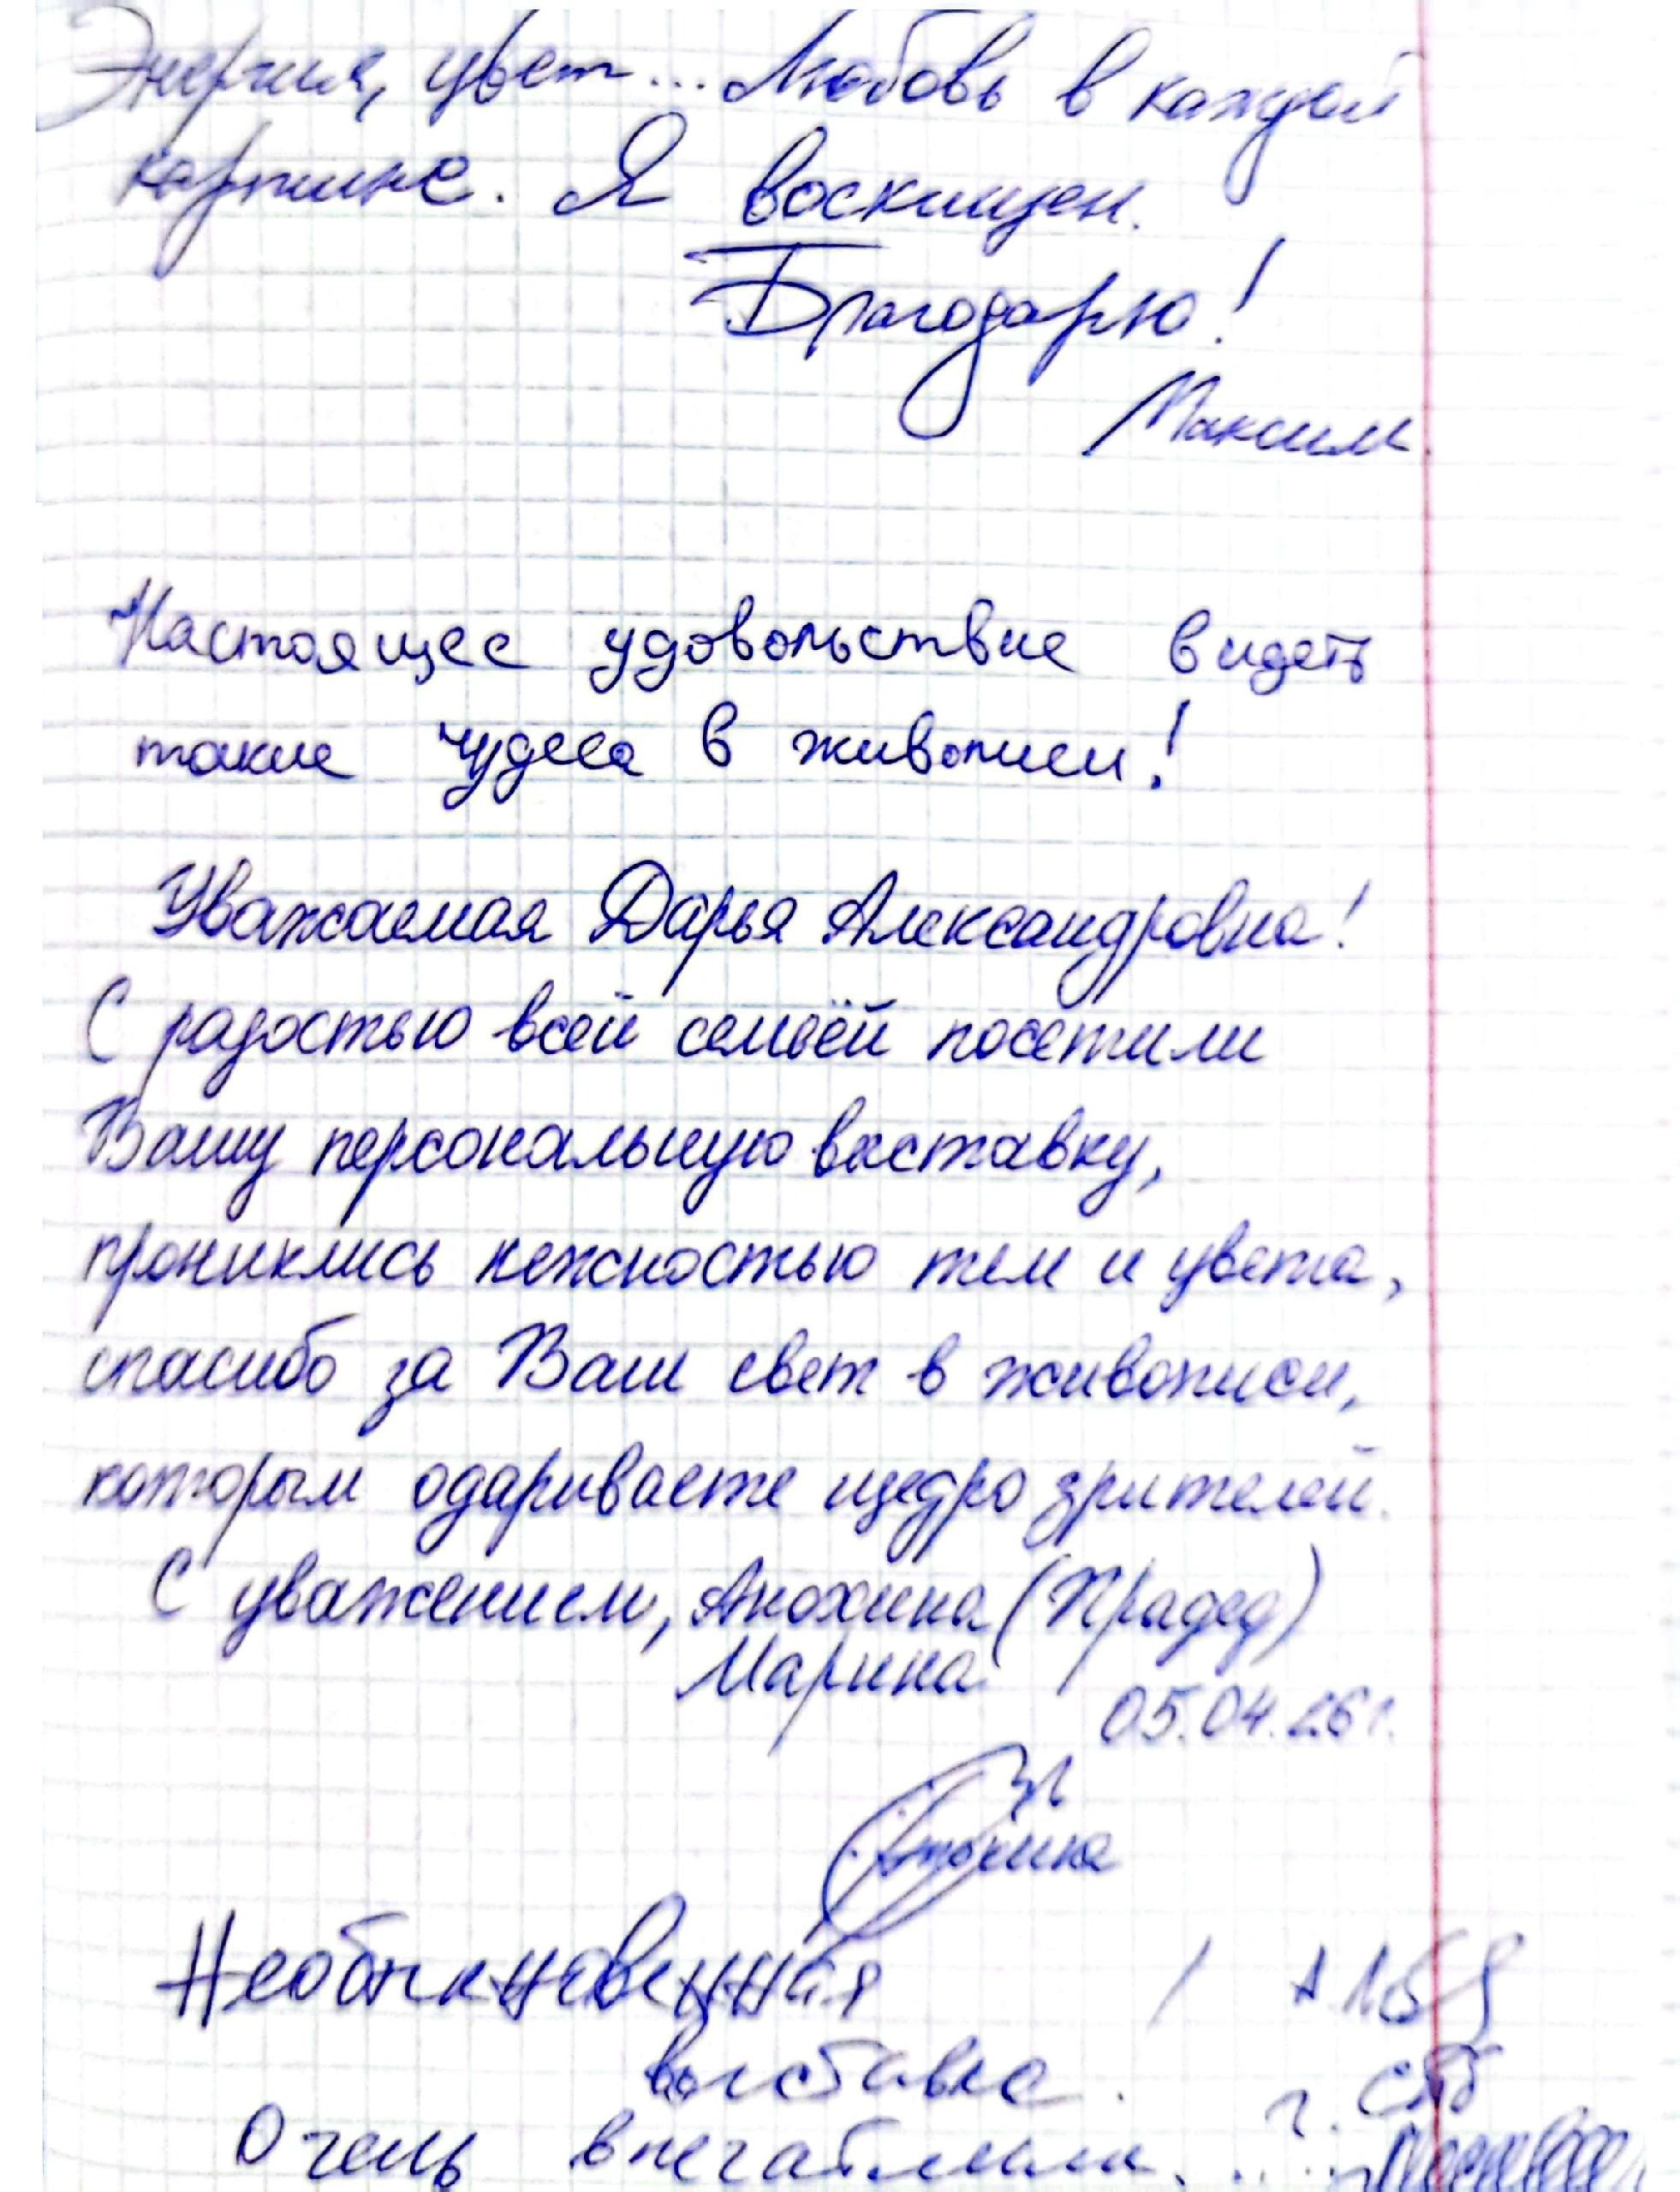 Энергия, цвет... Любовь в каждой
картине. Я восхищен.
Благодарю!
Максим
Настоящее удовольствие видеть
такие чудеса в живописи!
Уважаемая Дарья Александровна!
С радостью всей семьёй посетили
Вашу персональную выставку,
прониклись нежностью тем и цвета,
спасибо за Ваш свет в живописи,
которым одариваете щедро зрителей.
С уважением, Анохина (Прадед)
Марина
05.04.26 г.
Необыкновенная
выставка.
г. СПб
Очень впечатлили...